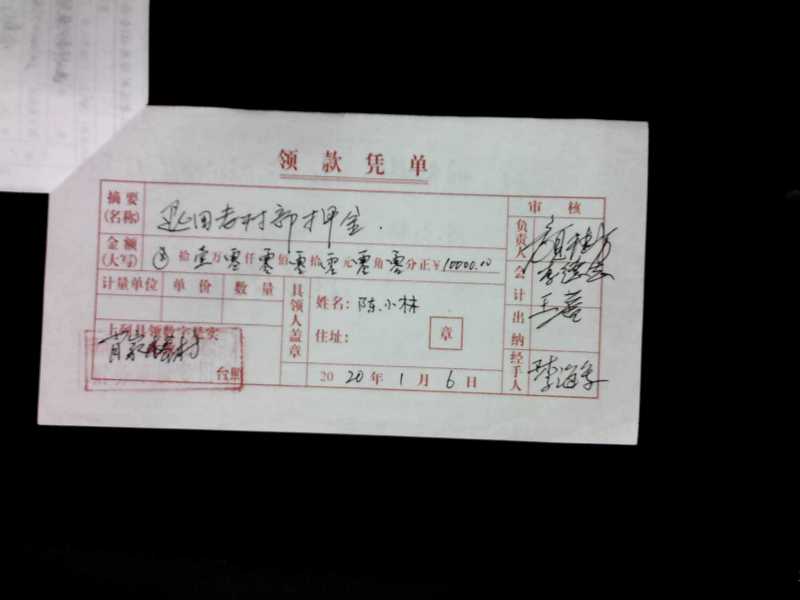 领款凭单
摘要(名称) 退回老村部押金.
审核
金额(大写) 拾壹万零仟零佰零拾零元零角零分正¥10000.00
负责人
会计
计量单位 单价 数量
具领人盖章
姓名:陈小林
出纳
上列具领数字是实
住址: 章
台照
2020年1月6日
经手人